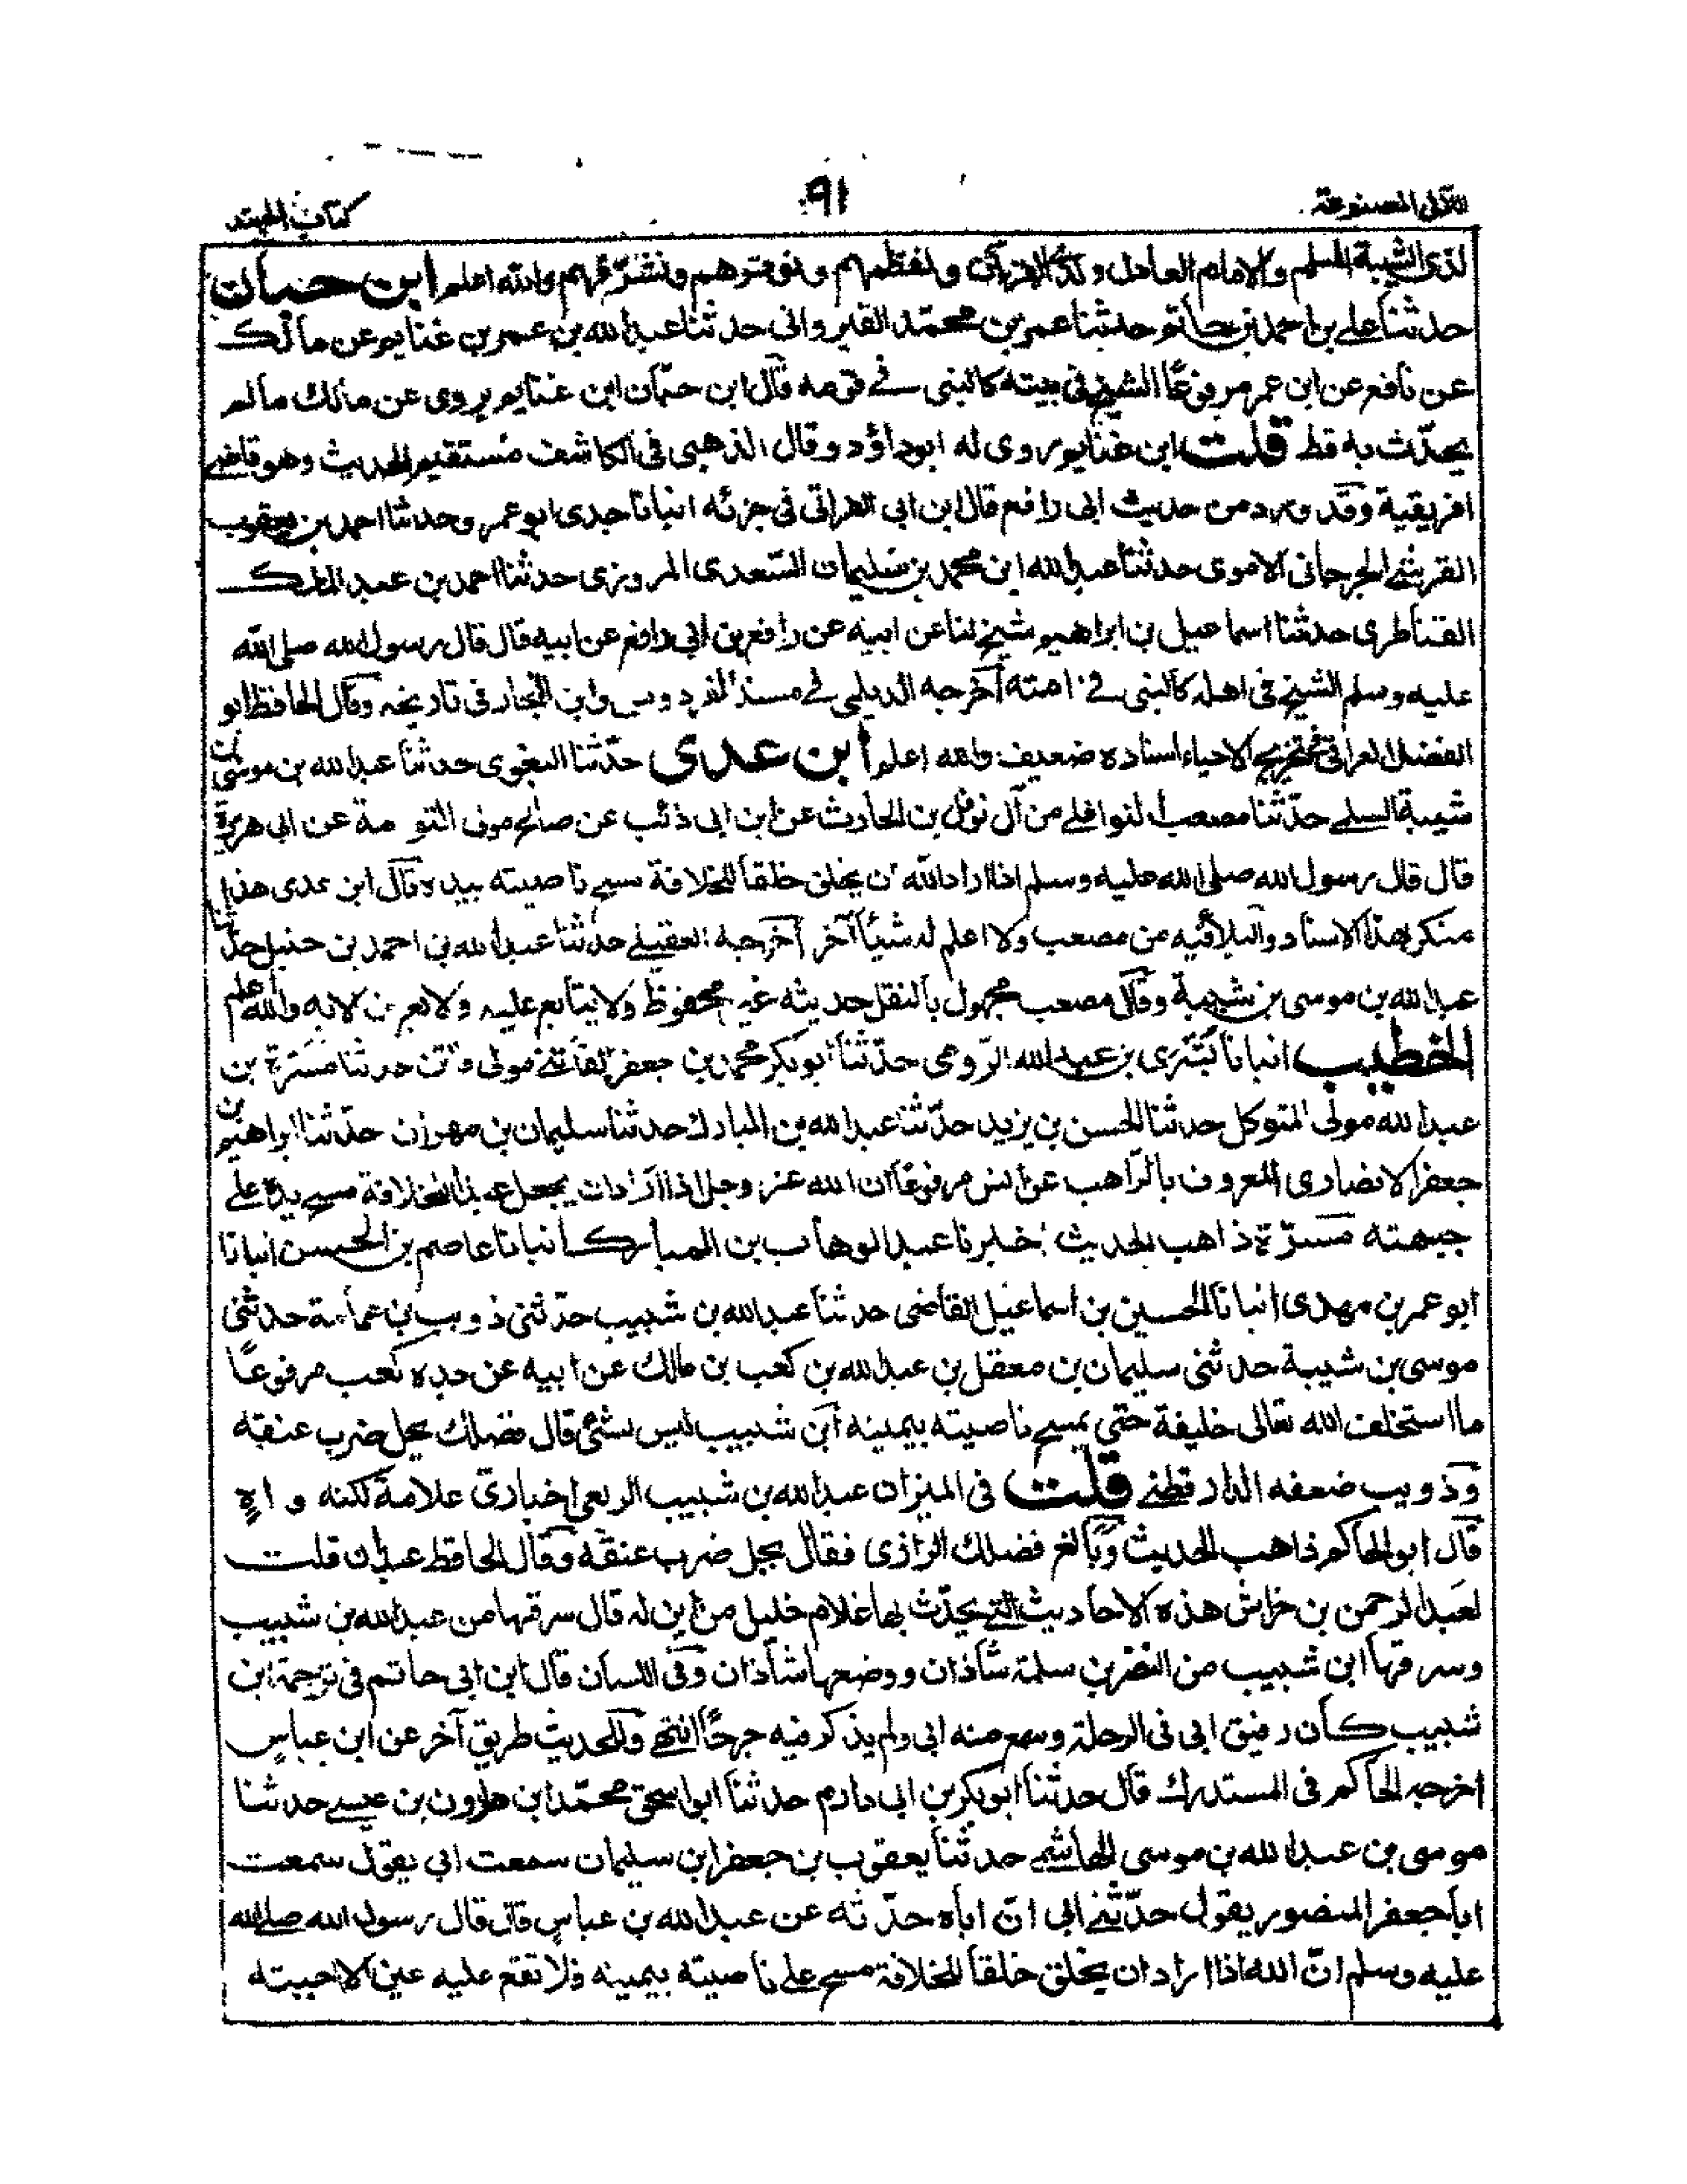 اللآلی المصنوعة
۹۱
کتاب المبتد
لذی الشیبة المسلم والامام العادل و لذی القرآن و لفظمهم و نوقرهم و نشرّفهم والله اعلم ابن حبان
حدثنا علے بن احمد بن حاتم حدثنا عمر بن محمّد القیروانی حدثنا عبدالله بن عمر بن غنایم عن مالك
عن نافع عن ابن عمر مرفوعًا الشیخ فی بیته کالنبی فے قومه قال ابن حبّان ابن غنایم یروی عن مالك مالم
یحدّث به قط قلت ابن غنایم روی له ابو داؤد وقال الذهبی فی الکاشف مستقیم الحدیث وهو قاضے
افریقیة وقد ورد من حدیث ابی رافع قال ابن ابی الفراتی فی جزئه انبانا جدی ابو عمر وحدثنا احمد بن یعقوب
القرشے الجرجانی الاموی حدثنا عبدالله ابن محمد بن سلیمان السّعدی المروزی حدثنا احمد بن عبد الملك
القناطری حدثنا اسماعیل بن ابراهیم شیخ لنا عن ابیه عن رافع بن ابی رافع عن ابیه قال قال رسول الله صلی الله
علیه وسلم الشیخ فی اهله کالنبی فے امته اخرجه الدیلمی فے مسند الفردوس وابن النجار فی تاریخه وقال الحافظ ابو
الفضل العراقی فی تخریج الاحیاء اسناده ضعیف والله اعلم ابن عدی حدّثنا البغوی حدثنا عبدالله بن موسی بن
شیبة السلمے حدّثنا مصعب النوافلے من آل نوفل بن الحارث عن ابن ابی ذئب عن صالح مولی التومة عن ابی هریرة
قال قال رسول الله صلی الله علیه وسلم اذا اراد الله ان یخلق خلقا للخلافة مسح ناصیته بیده قال ابن عدی هذا
منکر بهذا الاسناد والبلاء فیه من مصعب ولا اعلم له شیئا آخر اخرجه العقیلے حدثنا عبدالله بن احمد بن حنبل حدّثنا
عبدالله بن موسی بن شیبة وقال مصعب مجهول بالنقل حدیثه غیر محفوظ ولا یتابع علیه ولا یعرف الا به والله اعلم
الخطیب انبانا بُشری بن عبدالله الرّومی حدّثنا ابوبکر محمد بن جعفر مولی حدثنا مَسَرّة بن
عبدالله مولی المتوکل حدثنا الحسن بن یزید حدّثنا عبدالله بن المبارك حدثنا سلیمان بن مهران حدّثنا ابراهیم بن
جعفر الانصاری المعروف بالرّاهب عن انس مرفوعًا ان الله عز وجل اذا اراد ان یجعل عبدا للخلافة مسح یده علے
جبهته مسرّة ذاهب الحدیث اخبرنا عبد الوهاب بن المبارك انبانا عاصم بن الحسن انبانا
ابو عمر بن مهدی انبانا الحسین بن اسماعیل القاضی حدثنا عبدالله بن شبیب حدّثنی ذویب بن عمامة حدثنی
موسی بن شیبة حدثنی سلیمان بن معقل بن عبدالله بن کعب بن مالك عن ابیه عن جده کعب مرفوعًا
ما استخلف الله تعالی خلیفة حتی یمسح ناصیته بیمینه ابن شبیب لیس بشئ قال فضلك یحل ضرب عنقه
وذویب ضعفه الدارقطنے قلت فی المیزان عبدالله بن شبیب الربعی اخباری علامة لکنه واهٍ
قال ابو الحاکم ذاهب الحدیث وبالغ فضلك الرازی فقال یحل ضرب عنقه وقال الحافظ عبدان قلت
لعبد الرحمن بن خراش هذه الاحادیث التے یحدّث بها غلام خلیل من این له قال سرقها من عبدالله بن شبیب
وسرقها ابن شبیب من النضر بن سلمة شاذان ووضعها شاذان وفی اللسان قال ابن ابی حاتم فی ترجمة ابن
شبیب کان رفیق ابی فی الرحلة وسمع منه ابی ولم یذکر فیه جرحًا انتهے وللحدیث طریق آخر عن ابن عباس
اخرجه الحاکم فی المستدرك قال حدثنا ابوبکر بن ابی دارم حدثنا ابو اسحق محمّد ابن هارون بن عیسے حدثنا
موسی بن عبدالله بن موسی الهاشمے حدثنا یعقوب بن جعفر ابن سلیمان سمعت ابی یقول سمعت
ابا جعفر المنصور یقول حدّثنے ابی انّ اباه حدّثه عن عبدالله بن عباس قال قال رسول الله صلے الله
علیه وسلم انّ الله اذا اراد ان یخلق خلقا للخلافة مسح علے ناصیته بیمینه فلا تقع علیه عین الا احبته